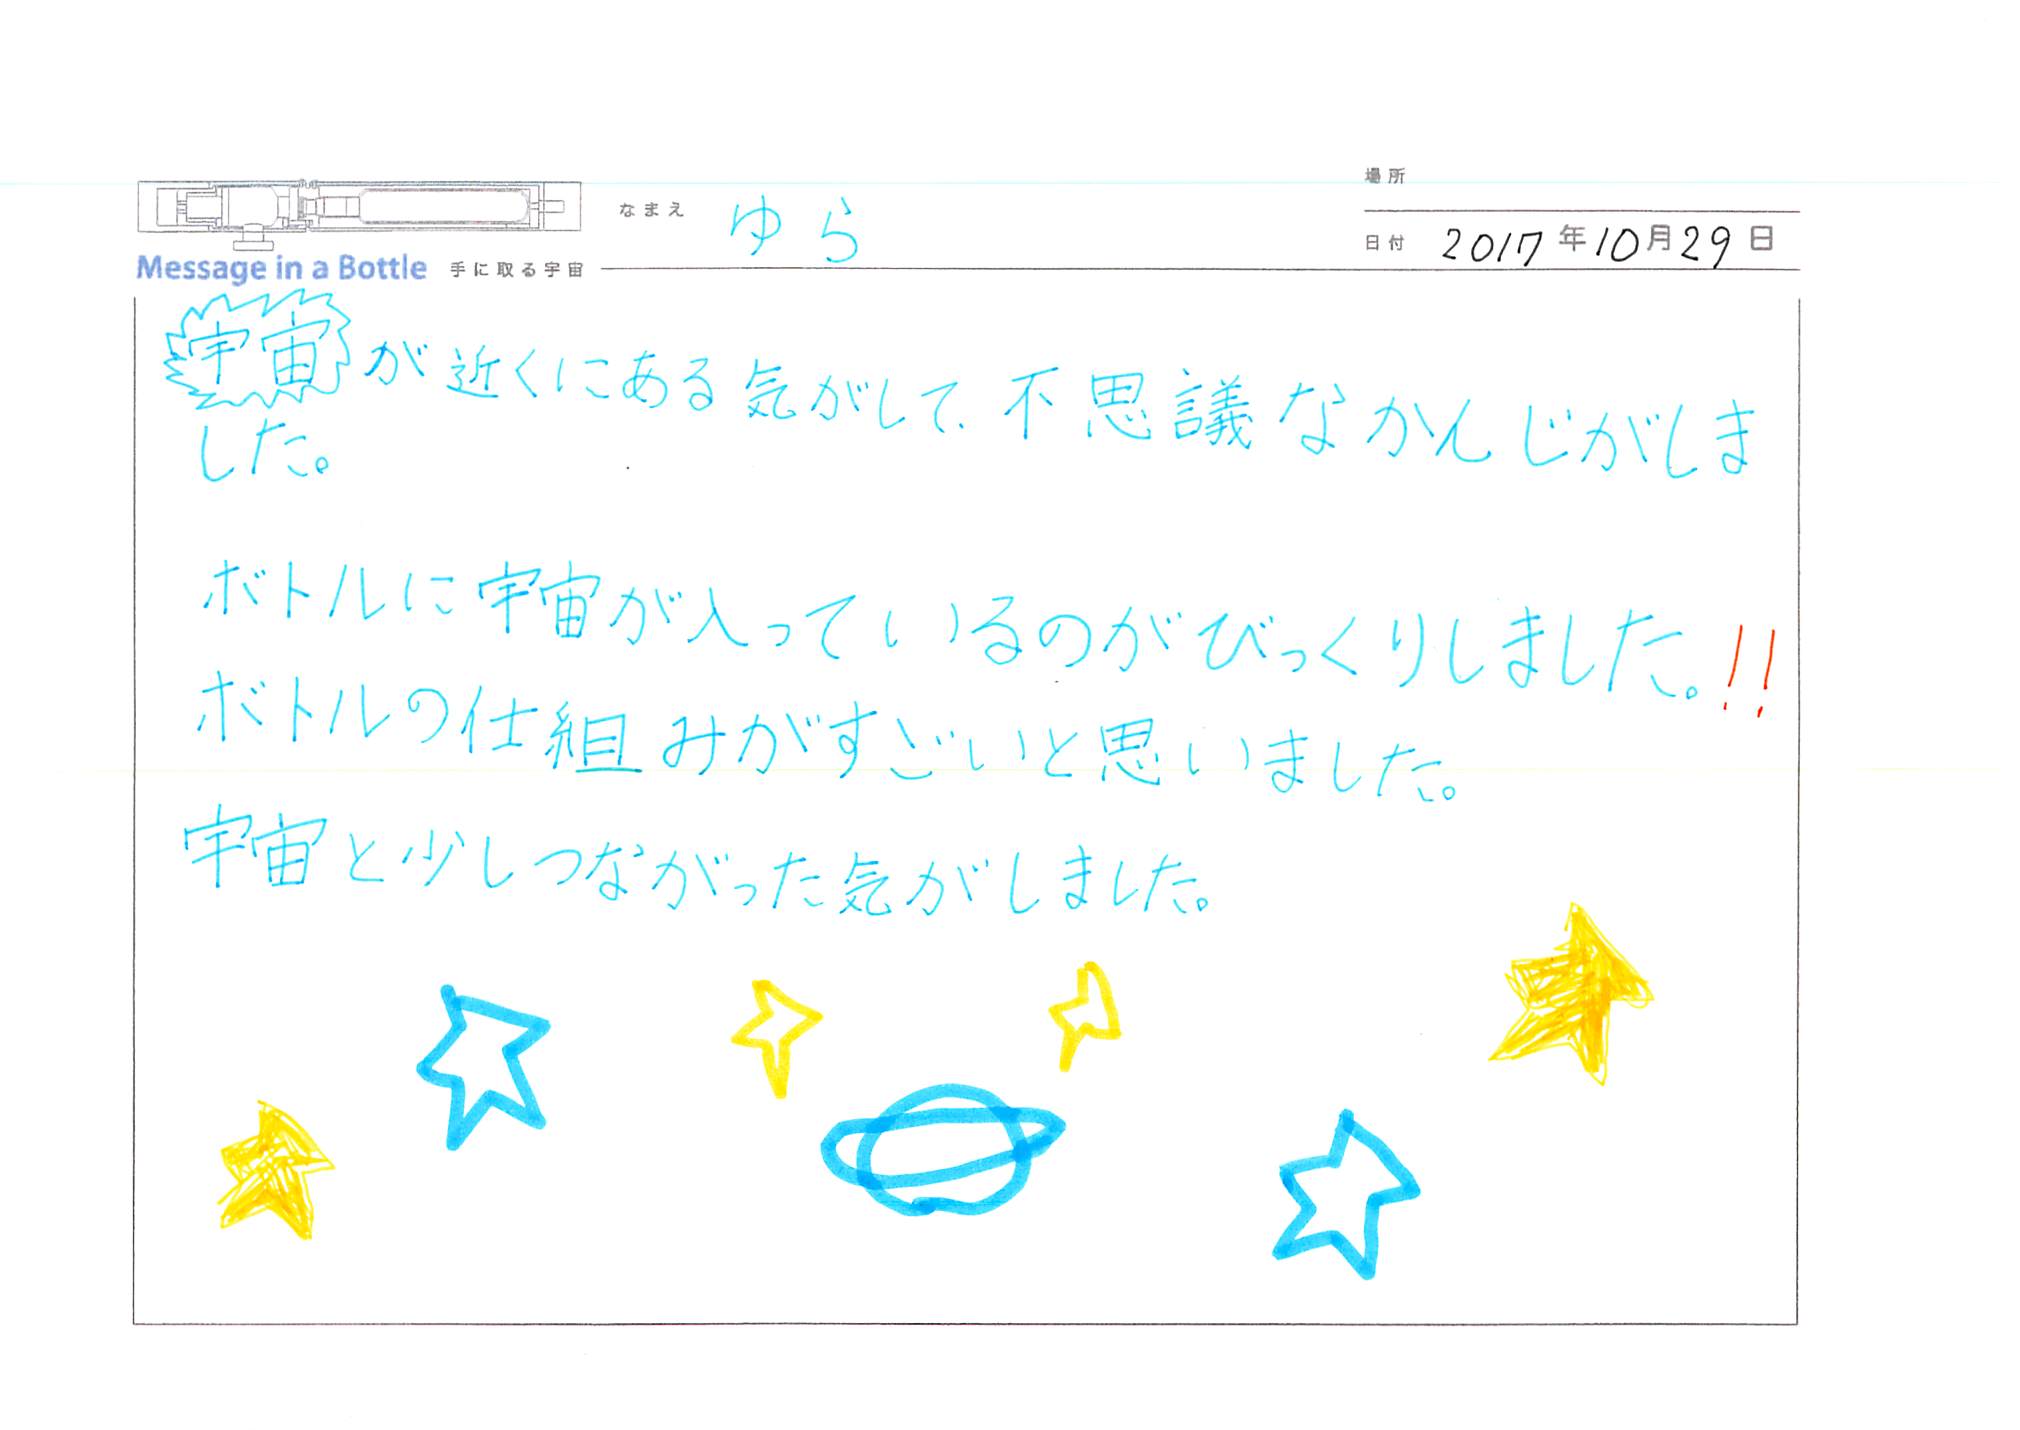 場所
なまえ ゆら
日付 2017年10月29日
Message in a Bottle 手に取る宇宙
宇宙が近くにある気がして、不思議なかんじがしま
した。
ボトルに宇宙が入っているのがびっくりしました。!!
ボトルの仕組みがすごいと思いました。
宇宙と少しつながった気がしました。